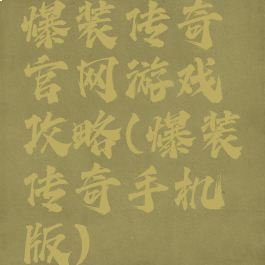 爆装传奇
官网游戏
攻略(爆装
传奇手机
版)